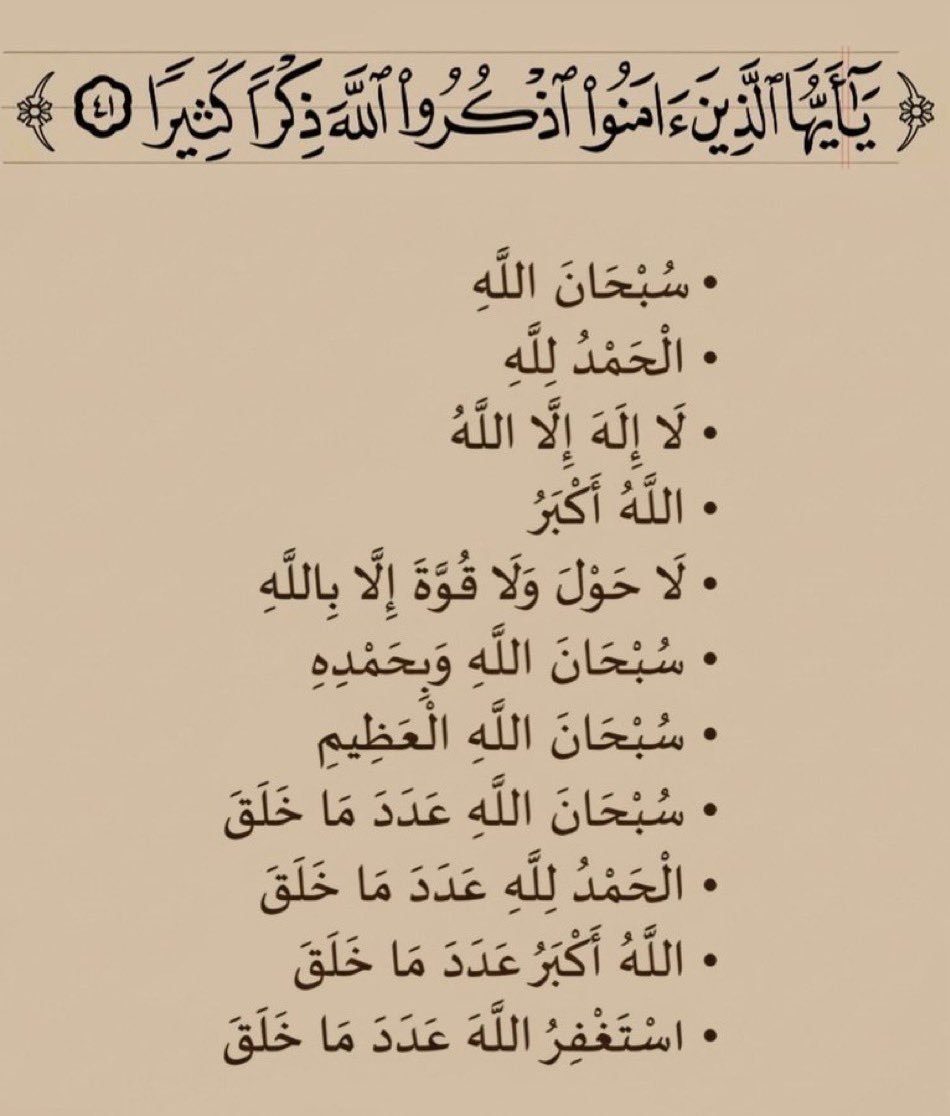 ﴿يَٰٓأَيُّهَا ٱلَّذِينَ ءَامَنُوا۟ ٱذْكُرُوا۟ ٱللَّهَ ذِكْرًا كَثِيرًا ٤١﴾
• سُبْحَانَ اللَّهِ
• الْحَمْدُ لِلَّهِ
• لَا إِلَهَ إِلَّا اللَّهُ
• اللَّهُ أَكْبَرُ
• لَا حَوْلَ وَلَا قُوَّةَ إِلَّا بِاللَّهِ
• سُبْحَانَ اللَّهِ وَبِحَمْدِهِ
• سُبْحَانَ اللَّهِ الْعَظِيمِ
• سُبْحَانَ اللَّهِ عَدَدَ مَا خَلَقَ
• الْحَمْدُ لِلَّهِ عَدَدَ مَا خَلَقَ
• اللَّهُ أَكْبَرُ عَدَدَ مَا خَلَقَ
• اسْتَغْفِرُ اللَّهَ عَدَدَ مَا خَلَقَ